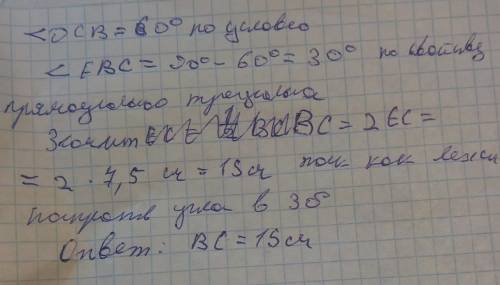 <DCB = 60° по условию
<EBC = 90° - 60° = 30° по свойству
прямоугольного треугольника
Значит BC = 2EC =
= 2 · 7,5 см = 15см так как лежи
напротив угла в 30°
Ответ: BC = 15см